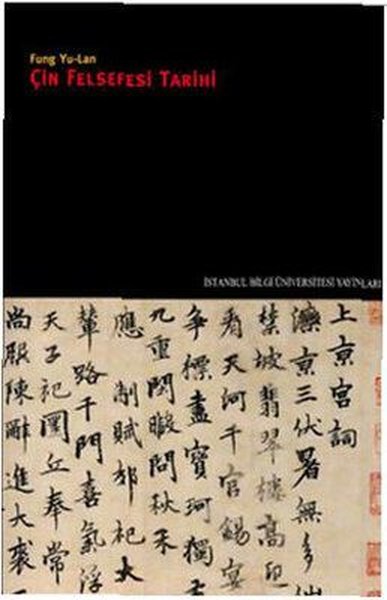 Fung Yu-Lan
ÇİN FELSEFESİ TARİHİ
İSTANBUL BİLGİ ÜNİVERSİTESİ YAYINLARI
上京宮詞
灤京三伏暑無多
坡翡翠樓高
看天河千官錫宴
争標盡寶珂獨
九重問秋禾
應制賦郊祀大
輦路千門喜氣浮
天子祀圜丘奉常
尚服陳進大裘